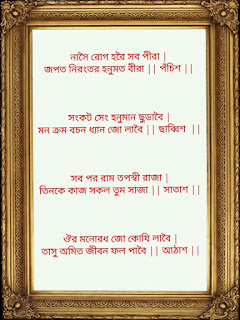 নাসৈ রোগ হরৈ সব পীরা |
জপত নিরংতর হনুমত বীরা || পঁচিশ ||
সংকট সেং হনুমান ছুডাবৈ |
মন ক্রম বচন ধ্যান জো লাবৈ || ছাব্বিশ ||
সব পর রাম তপস্বী রাজা |
তিনকে কাজ সকল তুম সাজা || সাতাশ ||
ঔর মনোরধ জো কোযি লাবৈ |
তাসু অমিত জীবন ফল পাবৈ || আঠাশ ||